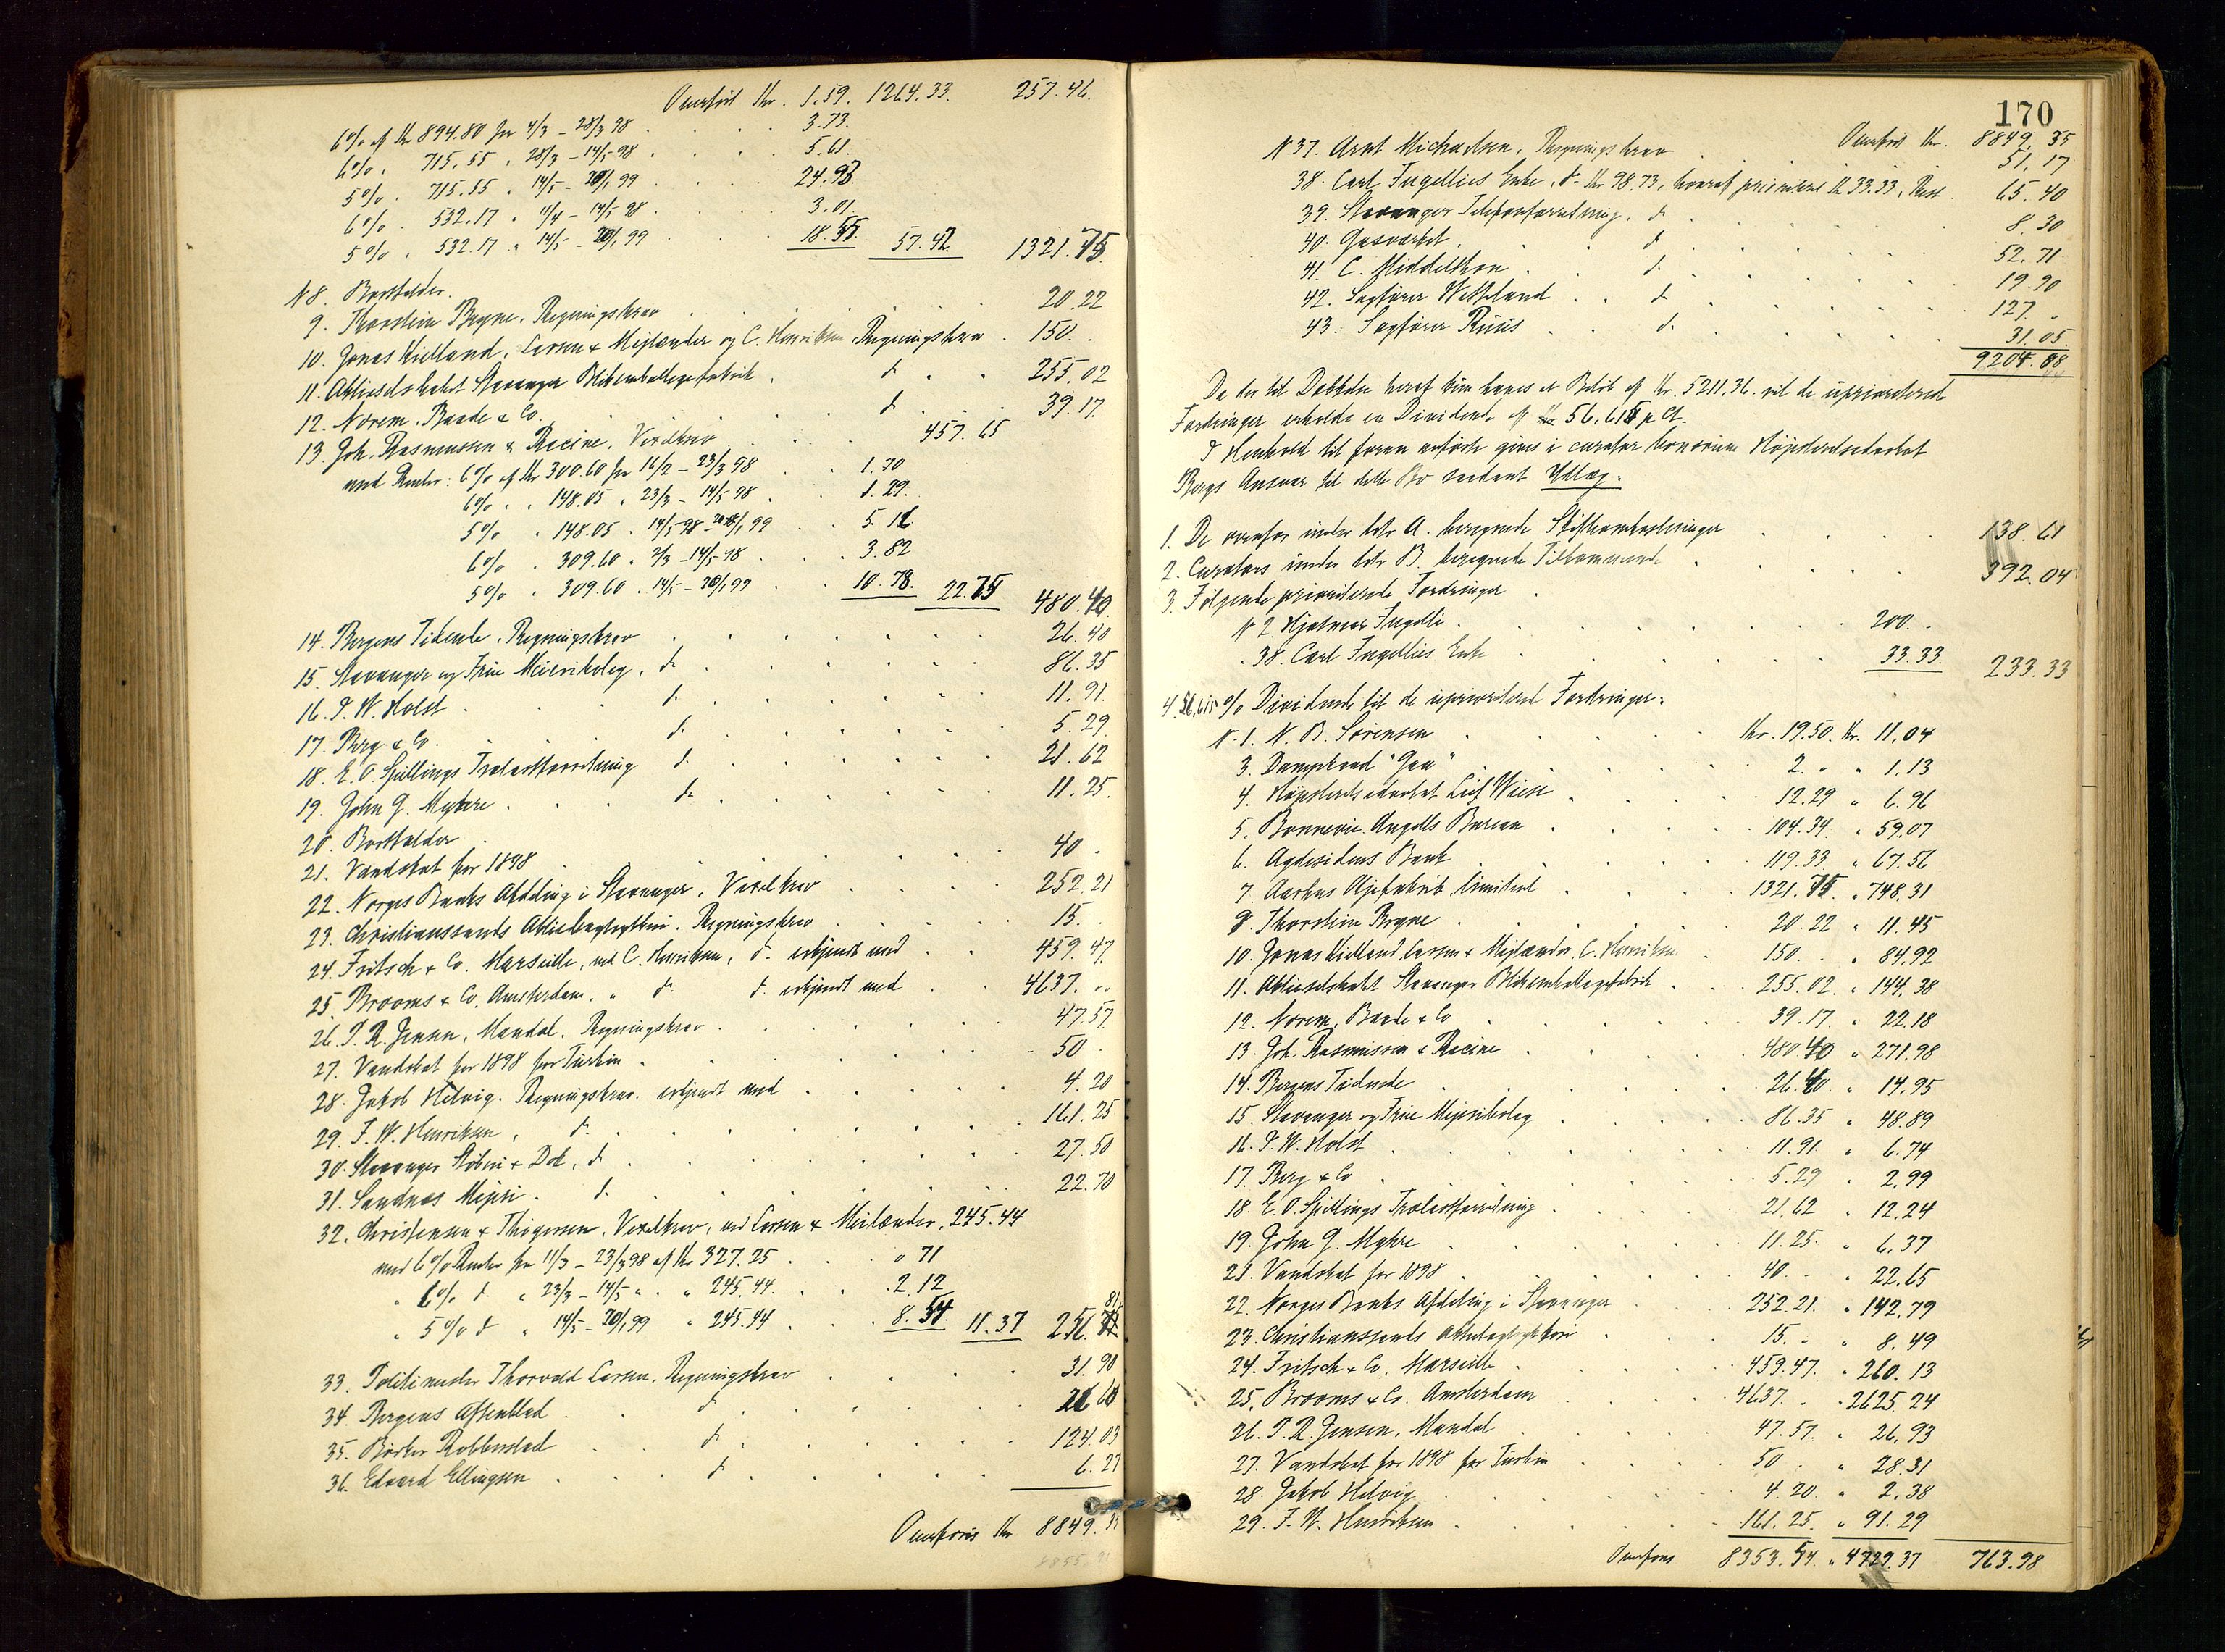 Overført Kr. 1.59. 1264.33. 257.46.
6% af Kr 894.80 fra 4/3 – 28/3 98 . . . 3.73.
6% „ 715.55 „ 28/3 – 14/5 98 . . . 5.61.
5% „ 715.55 „ 14/5 – 20/1 99 . . . 24.93.
6% „ 532.17 „ 11/4 – 14/5 98 . . . 3.01.
5% „ 532.17 „ 14/5 – 20/1 99 . . . 18.55. 57.42. 1321.75
N 8. Bortfalder.
9. Thorstein Bryne. Regningskrav . . . 20.22
10. Jonas Kielland, Larsen & Mejlænder og C. Henriksen. Regningskrav . 150. .
11. Aktieselskabet Stavanger Blikemballagefabrik . d. . 255.02
12. Norem, Baade & Co. . . . d. . 39.17.
13. Joh. Rasmussen & Racine. Vexelkrav . . . 457.65
med Renter: 6% af Kr 300.60 fra 16/2 – 23/3 98 . . 1.70
6% „ 148.05 „ 23/3 – 14/5 98 . . 1.29.
5% „ 148.05 „ 14/5 98 – 20/1 99 . . 5.16
6% „ 309.60 „ 2/3 – 14/5 98 . . 3.82
5% „ 309.60 „ 14/5 – 20/1 99 . . 10.78. 22.75 480.40.
14. Bergens Tidende. Regningskrav . . . 26.40
15. Stavanger og Frue Meieribolag, d. . . . 86.35
16. P. W. Holst . . . d. . . . 11.91.
17. Berg & Co. . . . d. . . . 5.29
18. E. O. Spillings Trælastforretning d. . . . 21.62
19. John G. Myhre . . . d. . . . 11.25.
20. Bortfalder
21. Vandskat for 1898 . . . 40 .
22. Norges Banks Afdeling i Stavanger. Vexelkrav . . . 252.21
23. Christianssands Aktiebogtrykkeri. Regningskrav . . . 15. .
24. Fritsch & Co. Marseille, ved C. Henriksen, d. erkjendt med . . 459.47.
25. Brooms & Co. Amsterdam. „ d. d. erkjendt med . . 4637. „
26. P. R. Jensen, Mandal. Regningskrav . . . 47.57.
27. Vandskat for 1898 for Turbin . . . 50 .
28. Jakob Helvig. Regningskrav. erkjendt med . . . 4.20
29. F. W. Henriksen, d. . . . 161.25
30. Stavanger Støberi & Dok, d. . . . 27.50
31. Sandnes Mejeri . d. . . . 22.70
32. Christensen & Thøgersen. Vexelkrav, ved Larsen & Meilænder. 245.44
med 6% Renter fra 11/3 – 23/3 98 af Kr 327.25 . . „ 71
„ 6% d. „ 23/3 – 14/5 „ „ 245.44. . . 2.12
„ 5% d. „ 14/5 – 20/1 99 „ 245.44 . . 8.54. 11.37 256.81
33. Thorvald Larsen. Regningskrav . . . 31.90
34. Bergens Aftenblad . . . d. . . .
35. Robberstad . . . d. . . . 124.03
36. Edvard Ellingsen . . . d. . . . 6.27
Overføres Kr 8849.35
170
Overført Kr. 8849.35
N 37. Arnt Michaelsen, Regningskrav . . . 51.17
38. Carl Ingellies Enke, d. Kr 98.73, hvoraf prioriteret Kr 33.33, Rest . 65.40
39. Stavanger Telefonforretning. d. . . . 8.30
40. Gasværket . . . d. . . . 52.71
41. C. Middelthon . . . d. . . . 19.90
42. Sagfører Wetteland . . d. . . . 127. „
43. Sagfører Ruus . . d. . . . 31.05.
9204.88
Da der til Dækkelse heraf kun haves et Beløb af Kr. 5211.36. vil de uprioriterede
Fordringer erholde en Dividende af 56.615 p Ct.
I Henhold til foran anførte gives i curator bonorum Højesteretsadvokat
Bergs Ansvar til dette Bo saadant Udlæg.
1. De ovenfor under Litr A. beregnede Skifteomkostninger . . . 138.61
2. Curators under Litr B. beregnede Tilkommende . . . 392.04
3. Følgende prioriterede Fordringer .
N 2. Hjalmar Ingelli . . . 200. .
„ 38. Carl Ingellies Enke . . . 33.33. 233.33
4. 56,615 % Dividende til de uprioriterede Fordringer:
N. 1. N. B. Sørensen . . . Kr. 19.50. Kr. 11.04
3. Dampkand "Gaa" . . . 2. „ „ 1.13
4. Højesteretsadvokat Leif Wiese . . . 12.29 „ 6.96
5. Bonnevie Angells Bureau . . . 104.34. „ 59.07
6. Agdesidens Bank . . . 119.33 „ 67.56
7. Aarhus Oljefabrik limited . . . 1321.75. „ 748.31
9. Thorstein Bryne . . . 20.22 „ 11.45
10. Jonas Kielland, Larsen & Mejlænder, C. Henriksen . 150. . „ 84.92
11. Aktieselskabet Stavanger Blikemballagefabrik . . 255.02. „ 144.38
12. Norem, Baade & Co . . . 39.17. „ 22.18
13. Joh. Rasmussen & Racine . . . 480.40 „ 271.98
14. Bergens Tidende . . . 26.40. „ 14.95
15. Stavanger og Frue Mejeribolag . . . 86.35 „ 48.89
16. P. W. Holst . . . 11.91. „ 6.74
17. Berg & Co . . . 5.29 „ 2.99
18. E. O. Spillings Trælastforretning . . . 21.62 „ 12.24
19. John G. Myhre . . . 11.25. „ 6.37
21. Vandskat for 1898 . . . 40. . „ 22.65
22. Norges Banks Afdeling i Stavanger . . . 252.21. „ 142.79
23. Christianssands Aktiebogtrykkeri . . . 15. „ „ 8.49
24. Fritsch & Co. Marseille . . . 459.47. „ 260.13
25. Brooms & Co. Amsterdam . . . 4637. . „ 2625.24
26. P. R. Jensen, Mandal . . . 47.57. „ 26.93
27. Vandskat for 1898 for Turbin . . . 50 . „ 28.31
28. Jakob Helvig . . . 4.20. „ 2.38
29. F. W. Henriksen . . . 161.25. „ 91.29
Overføres 8353.54. „ 4729.37 763.98